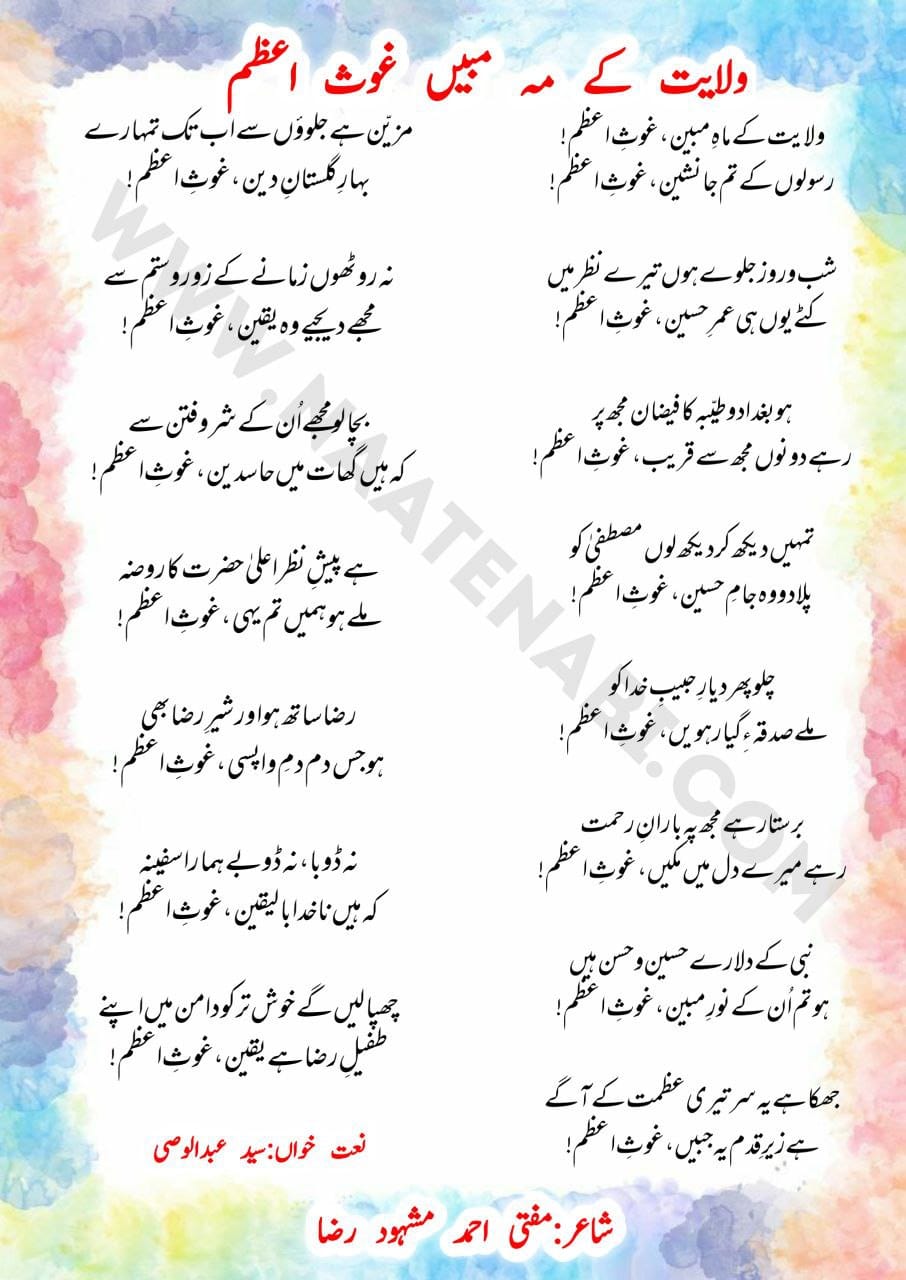 ولایت کے مہ مبیں غوث اعظم
ولایت کے ماہِ مبین، غوثِ اعظم!
رسولوں کے تم جانشین، غوثِ اعظم!
شب و روز جلوے ہوں تیرے نظر میں
کٹے یوں ہی عمرِ حسین، غوثِ اعظم!
ہو بغداد و طیّبہ کا فیضان مجھ پر
رہے دونوں مجھ سے قریب، غوثِ اعظم!
تمہیں دیکھ کر دیکھ لوں مصطفیٰ کو
پلا دو وہ جامِ حسین، غوثِ اعظم!
چلو پھر دیارِ حبیبِ خدا کو
ملے صدقۂ گیارہویں، غوثِ اعظم!
برستا رہے مجھ پہ بارانِ رحمت
رہے میرے دل میں مکیں، غوثِ اعظم!
نبی کے دلارے حسین و حسن ہیں
ہو تم اُن کے نورِ مبین، غوثِ اعظم!
جھکا ہے یہ سر تیری عظمت کے آگے
ہے زیرِ قدم یہ جبیں، غوثِ اعظم!
مزیّن ہے جلوؤں سے اب تک تمہارے
بہارِ گلستانِ دین، غوثِ اعظم!
نہ روٹھوں زمانے کے زور و ستم سے
مجھے دیجیے وہ یقین، غوثِ اعظم!
بچا لو مجھے اُن کے شر و فتن سے
کہ ہیں گھات میں حاسدین، غوثِ اعظم!
ہے پیشِ نظر اعلیٰ حضرت کا روضہ
ملے ہو ہمیں تم یہی، غوثِ اعظم!
رضا ساتھ ہو اور شیرِ رضا بھی
ہو جس دم دمِ واپسی، غوثِ اعظم!
نہ ڈوبا، نہ ڈوبے ہمارا سفینہ
کہ ہیں ناخدا بالیقین، غوثِ اعظم!
چھپا لیں گے خوش تر کو دامن میں اپنے
طفیلِ رضا ہے یقین، غوثِ اعظم!
نعت خواں:سید عبدالوصی
شاعر:مفتی احمد مشہود رضا
WWW.NAATENABI.COM